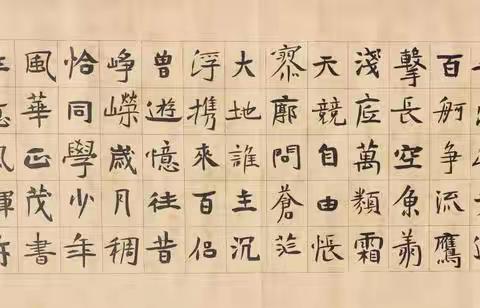 百舸争流鷹
擊長空魚翔
淺底萬類霜
天競自由悵
寥廓問蒼茫
大地誰主沉
浮携來百侣
曾遊憶往昔
崢嶸歲月稠
恰同學少年
風華正茂書